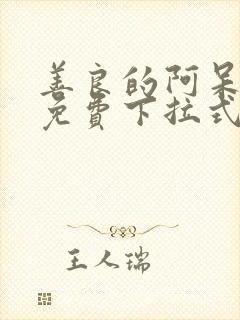 善良的阿呆
免費下拉式
王人瑞